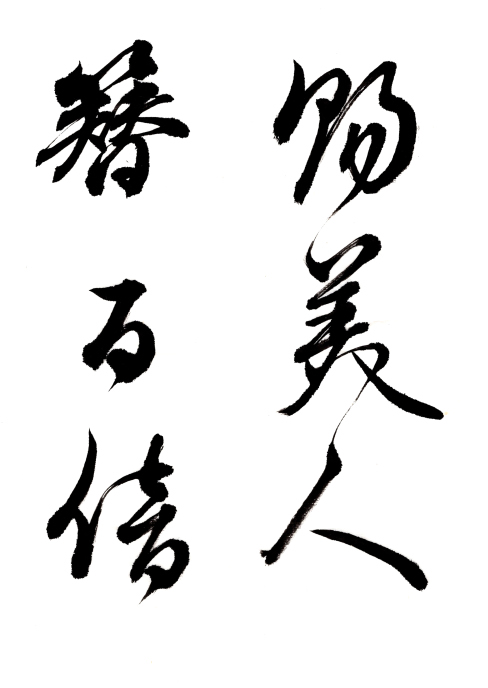 賜美人
簪百倍